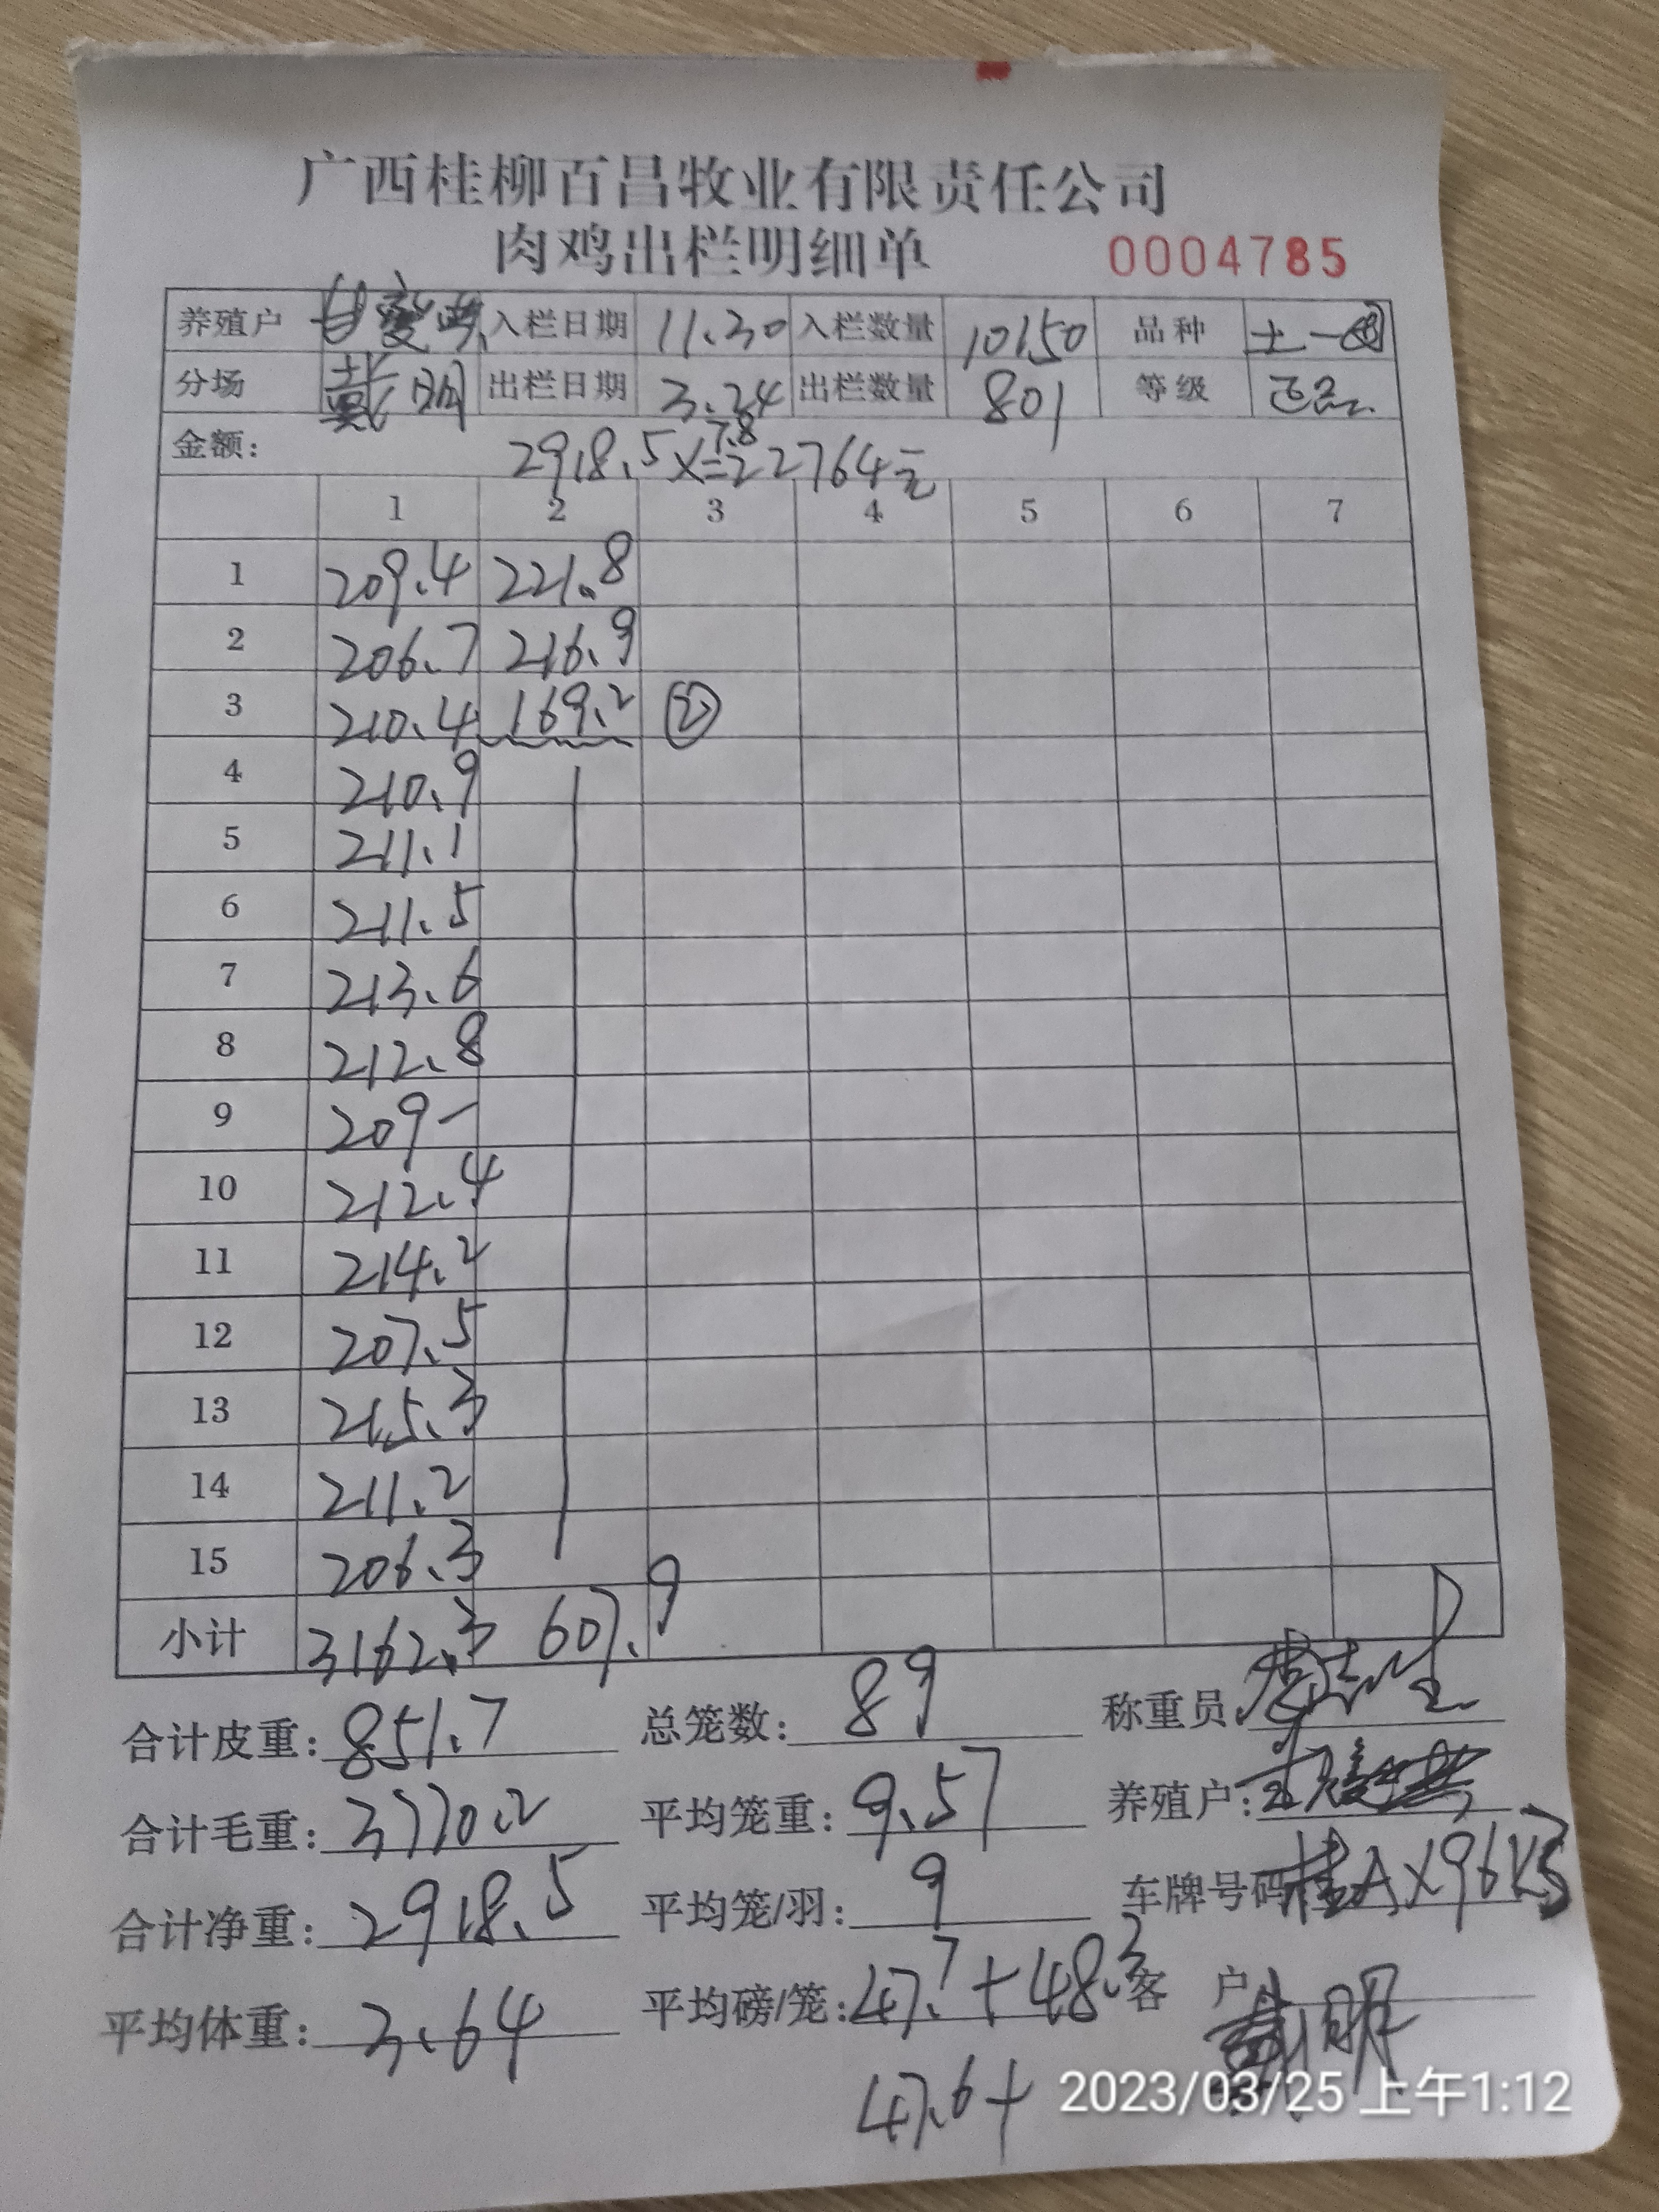 广西桂柳百昌牧业有限责任公司
肉鸡出栏明细单 0004785
养殖户 入栏日期 11.30 入栏数量 10150 品种 土一
分场 戴明 出栏日期 3.24 出栏数量 801 等级 正品
金额: 2918.5×7.8=22764元
1 2 3 4 5 6 7
1 209.4 221.8
2 206.7 216.9
3 210.4 169.2 ②
4 210.9
5 211.1
6 211.5
7 213.6
8 212.8
9 209-
10 212.4
11 214.2
12 207.5
13 215.3
14 211.2
15 206.3
小计 3162.3 607.9
合计皮重: 851.7 总笼数: 89 称重员:
合计毛重: 3770.2 平均笼重: 9.57 养殖户:
合计净重: 2918.5 平均笼/羽: 9 车牌号码 桂AX96K3
平均体重: 3.64 平均磅/笼: 47.7+48.3 客 户 戴明
47.6+
2023/03/25 上午1:12